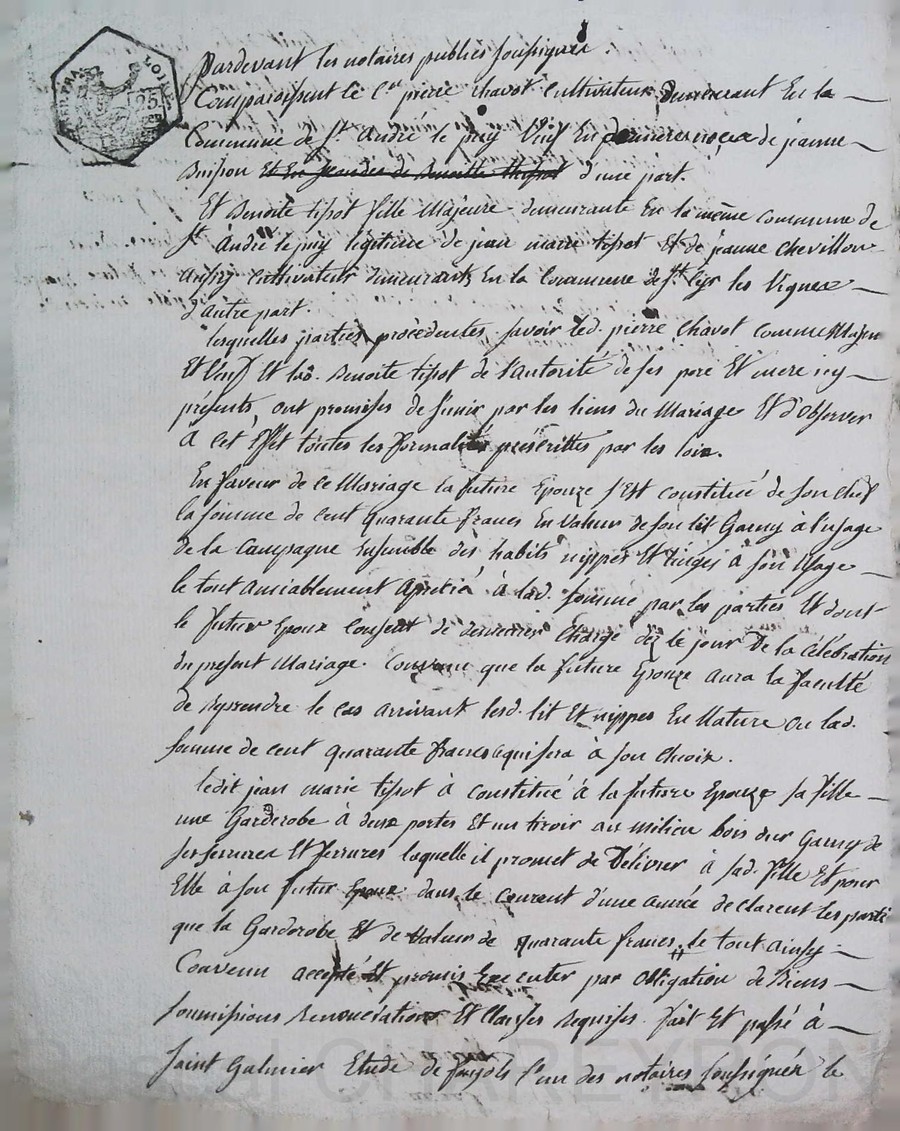 Pardevant les notaires publics soussignés
Comparoissent le C.en pierre Chavot Cultivateur demeurant En la
Commune de St. André le puy Veuf En dernieres noces de jeanne
Buisson Et En d'une part.
Et Benoite tissot fille Majeure demeurante En la même commune de
St. André le puy legitime de jean marie tissot Et de jeanne Chevillon
aussy cultivateurs demeurants En la Commune de St. Cyr les Vignes
d'autre part.
lesquelles parties procédentes, savoir led. pierre Chavot Comme Majeur
Et Veuf Et lad. Benoite tissot de l'autorité de ses pere Et mere icy
présents, ont promises de s'unir par les liens du Mariage Et d'observer
à cet Effet toutes les formalités prescrittes par les loix.
En faveur de ce Mariage la future Epouze s'Est constituée de son chef
la somme de cent quarante francs En valeur de son lit Garny à l'usage
de la Campagne Ensemble des habits nippes Et linges à son Usage
le tout amiablement apretié à lad. somme par les parties Et dont
le futur Epoux Consent de demeurer Chargé dez le jour De la Célébration
du présent Mariage. Convenu que la future Epouze aura la faculté
de reprendre le cas arrivant lesd. lit Et nippes En Nature ou lad.
somme de cent quarante francs qui sera à son choix.
ledit jean marie tissot à constitué à la future Epouze sa fille
une Garderobe à deux portes Et un tiroir au milieu bois dur Garny de
ses serrures Et ferrures laquelle il promet de Délivrer à sad. fille Et pour
Elle à son futur Epoux dans le courent d'une année declarent les parties
que la Garderobe Et de valeur de quarante francs. le tout ainsy
Convenu accepté Et promis Executer par obligation de Biens
soumissions Renonciations Et Clauses requises. fait Et passé à
Saint Galmier Etude de l'un des notaires soussignés le